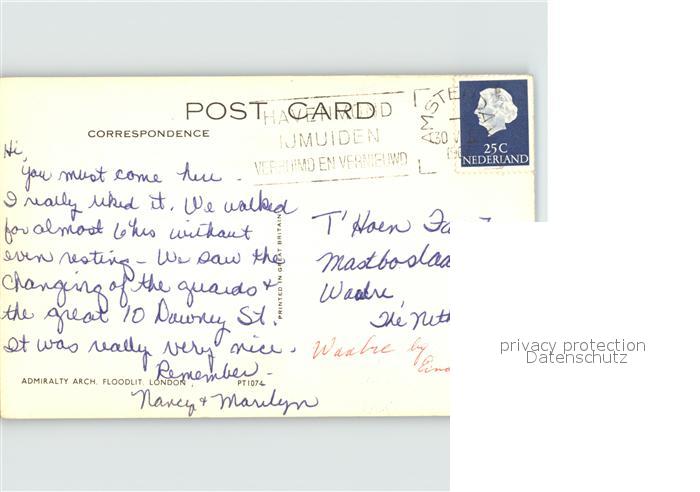 POST CARD
CORRESPONDENCE
HAVENMOND
IJMUIDEN
VERRUIMD EN VERNIEUWD
AMSTE
30 V
25 C
NEDERLAND
Hi,
You must come here.
I really liked it. We walked
for almost 6 hrs without
even resting - We saw the
changing of the guards &
the great 10 Downey St.
It was really very nice.
Remember -
Nancy & Marilyn
PRINTED IN GREAT BRITAIN
ADMIRALTY ARCH, FLOODLIT, LONDON
PT1074
T'Hoen Fa
Mastboslaa
Waalre,
The Neth
Waalre by
Eind
privacy protection
Datenschutz